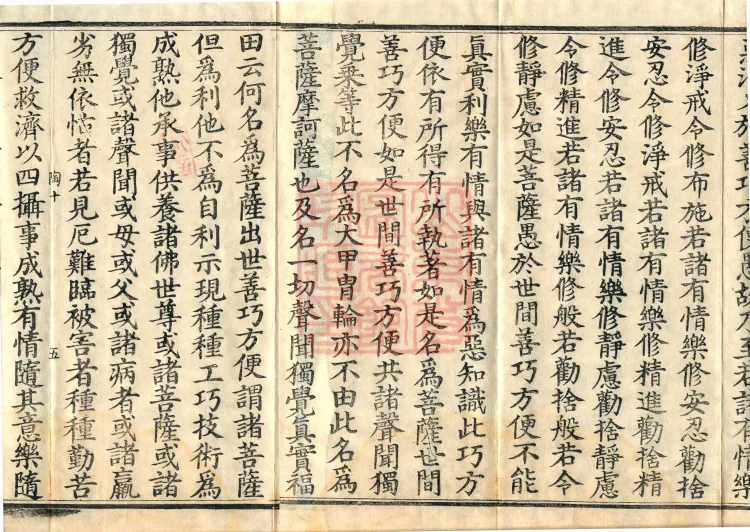 善巧方便愚故乃至若諸有情樂
修淨戒令修布施若諸有情樂修安忍勸捨
安忍令修淨戒若諸有情樂修精進勸捨精
進令修安忍若諸有情樂修靜慮勸捨靜慮
令修精進若諸有情樂修般若勸捨般若令
修靜慮如是菩薩愚於世間善巧方便不能
眞實利樂有情與諸有情爲惡知識此巧方
便依有所得有所執著如是名爲菩薩世間
善巧方便如是世間善巧方便共諸聲聞獨
覺乘等此不名爲大甲胄輪亦不由此名爲
菩薩摩訶薩也及名一切聲聞獨覺眞實福
田云何名爲菩薩出世善巧方便謂諸菩薩
但爲利他不爲自利示現種種工巧技術爲
成熟他承事供養諸佛世尊或諸菩薩或諸
獨覺或諸聲聞或母或父或諸病者或諸羸
劣無依怙者若見厄難臨被害者種種勤苦
陶十 五
方便救濟以四攝事成熟有情隨其意樂隨